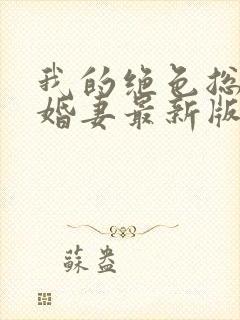 我的绝色总
婚妻最新版
蘇盎